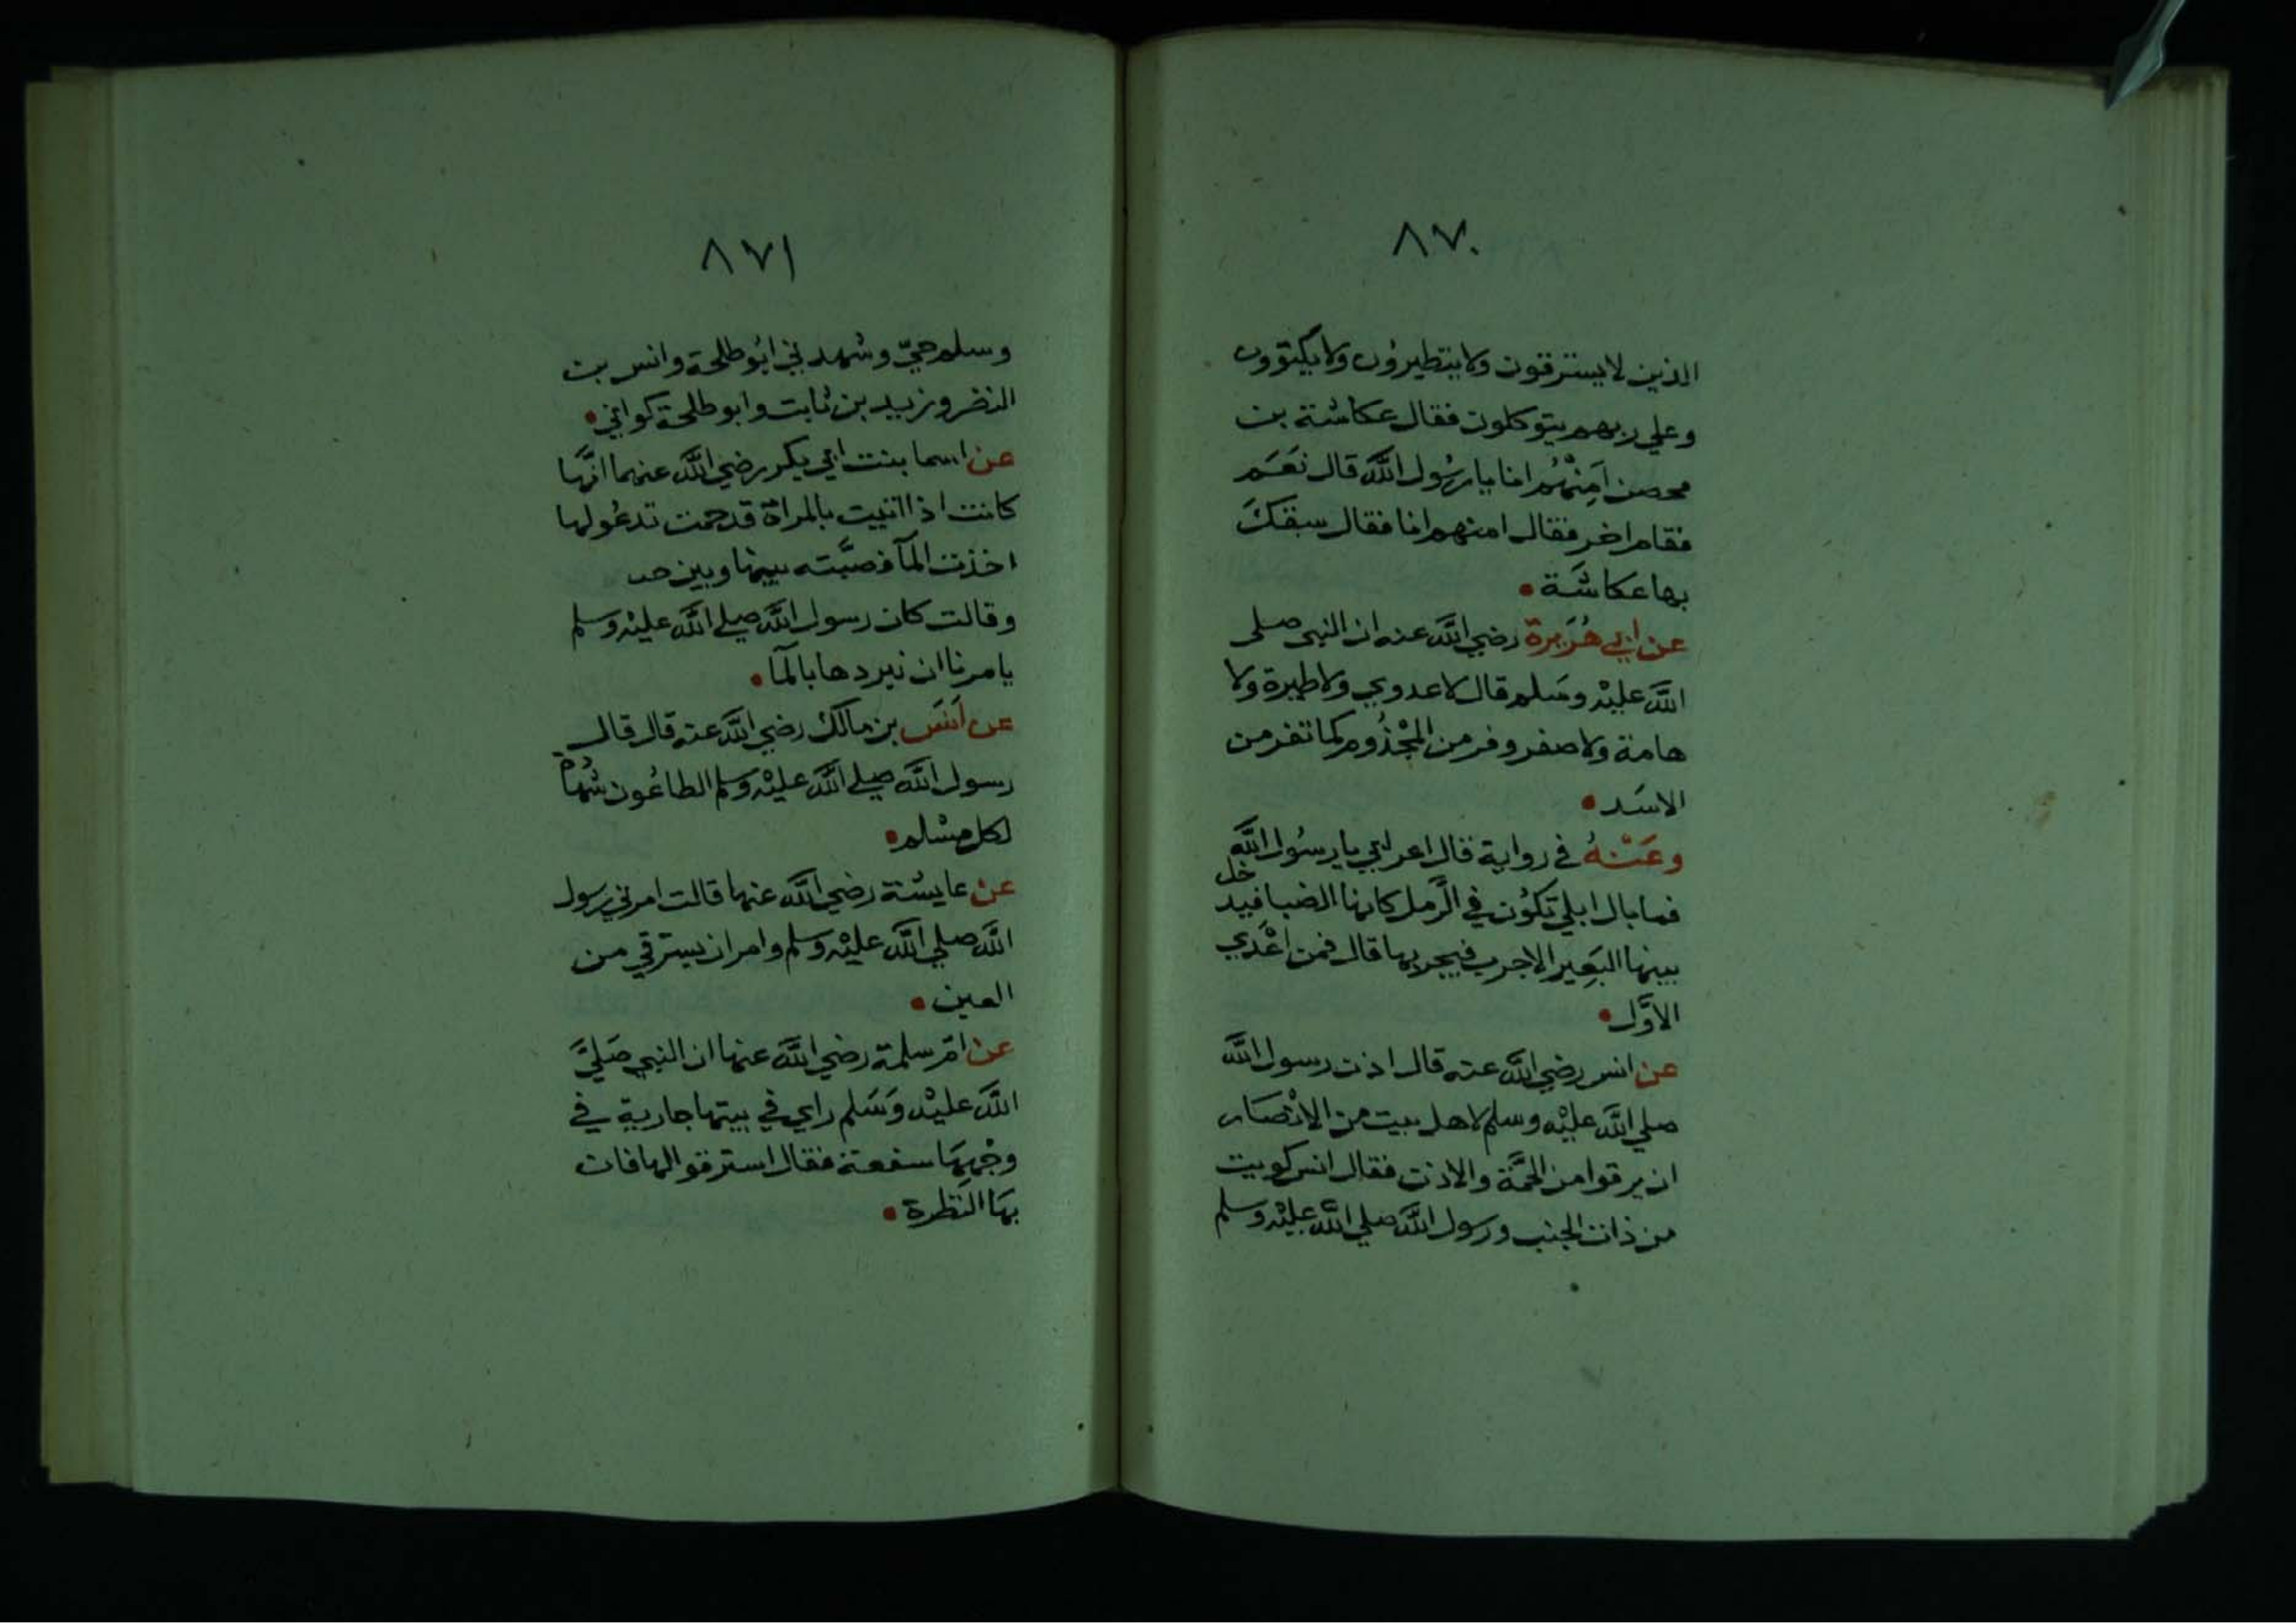 ٨٧٠
الذين لا يسترقون ولا يتطيرون ولا يكتوون
وعلي ربهم يتوكلون فقال عكاشة بن
محصن اَمِنْهُم انا يا رسُول الله قال نَعَم
فقام اخر فقال امنهم انا فقال سبقكَ
بها عكاشَة
عن ابي هُرَيرة رضي الله عنه ان النبي صلى
الله عليْه وسَلم قال لا عدوي ولا طيرة ولا
هامة ولا صفر وفر من المجْذُوم كما تفر من
الاسَد
وعَنْهُ في رواية قال اعرابي يا رسُول الله
فما بال ابلي تكوُن في الرَّمل كانها الضبا فيدخل
بينها البَعِير الاجرب فيجربها قال فمن اعْدَي
الاوَّل
عن انس رضي الله عنه قال اذن رسول الله
صلي الله عليْه وسلم لاهل بيت من الانْصَار
ان يرقوا من الحمَّة والاذن فقال انس كويت
من ذات الجنب ورسول الله صلي الله عليْه وسلم
٨٧١
وسلم حيّ وشهدني ابُو طلحة وانس بن
النضر وزيد بن ثابت وابو طلحة كواني
عن اسما بنت ابي بكر رضي الله عنهما انَّها
كانت اذا اتيت بالمراة قد حمت تدعُو لها
اخذت المآ فصبَّته بينها وبين
وقالت كان رسول الله صلي الله عليْه وسلم
يامرنا ان نبردها بالمآ
عن اَنَس بن مالك رضي الله عنه قال قال
رسول الله صلي الله عليْه وسلم الطاعُون شهادة
لكل مسْلم
عن عايشة رضي الله عنها قالت امرني رسول
الله صلي الله عليْه وسلم وامر ان يسترقي من
العين
عن امّ سلمة رضي الله عنها ان النبي صَليَّ
الله عليْه وَسَلم راي في بيتها جارية في
وجْهِهَا سفعة فقال استرقوا لها فان
بهَا النَظرة